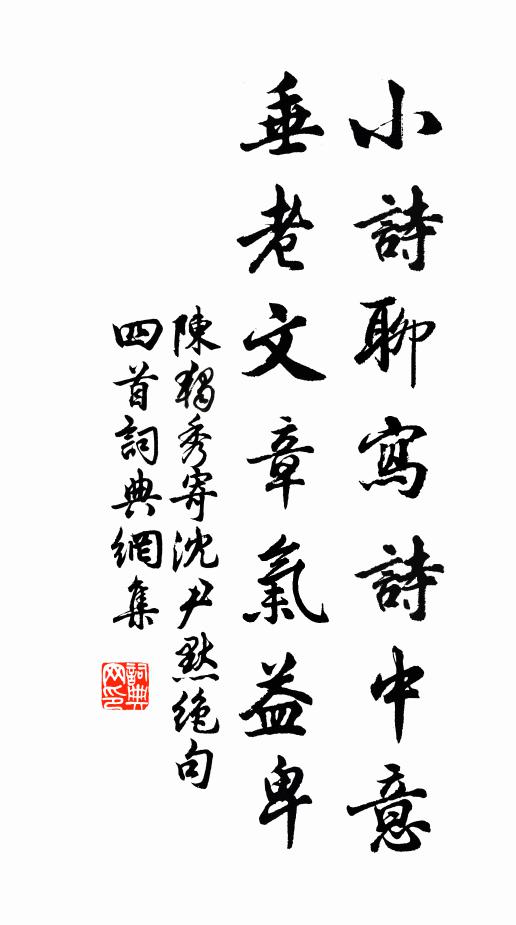 小詩聊寫詩中意
垂老文章氣益卑
陳獨秀寄沈尹默绝句
四首詞典網集
詞典网印